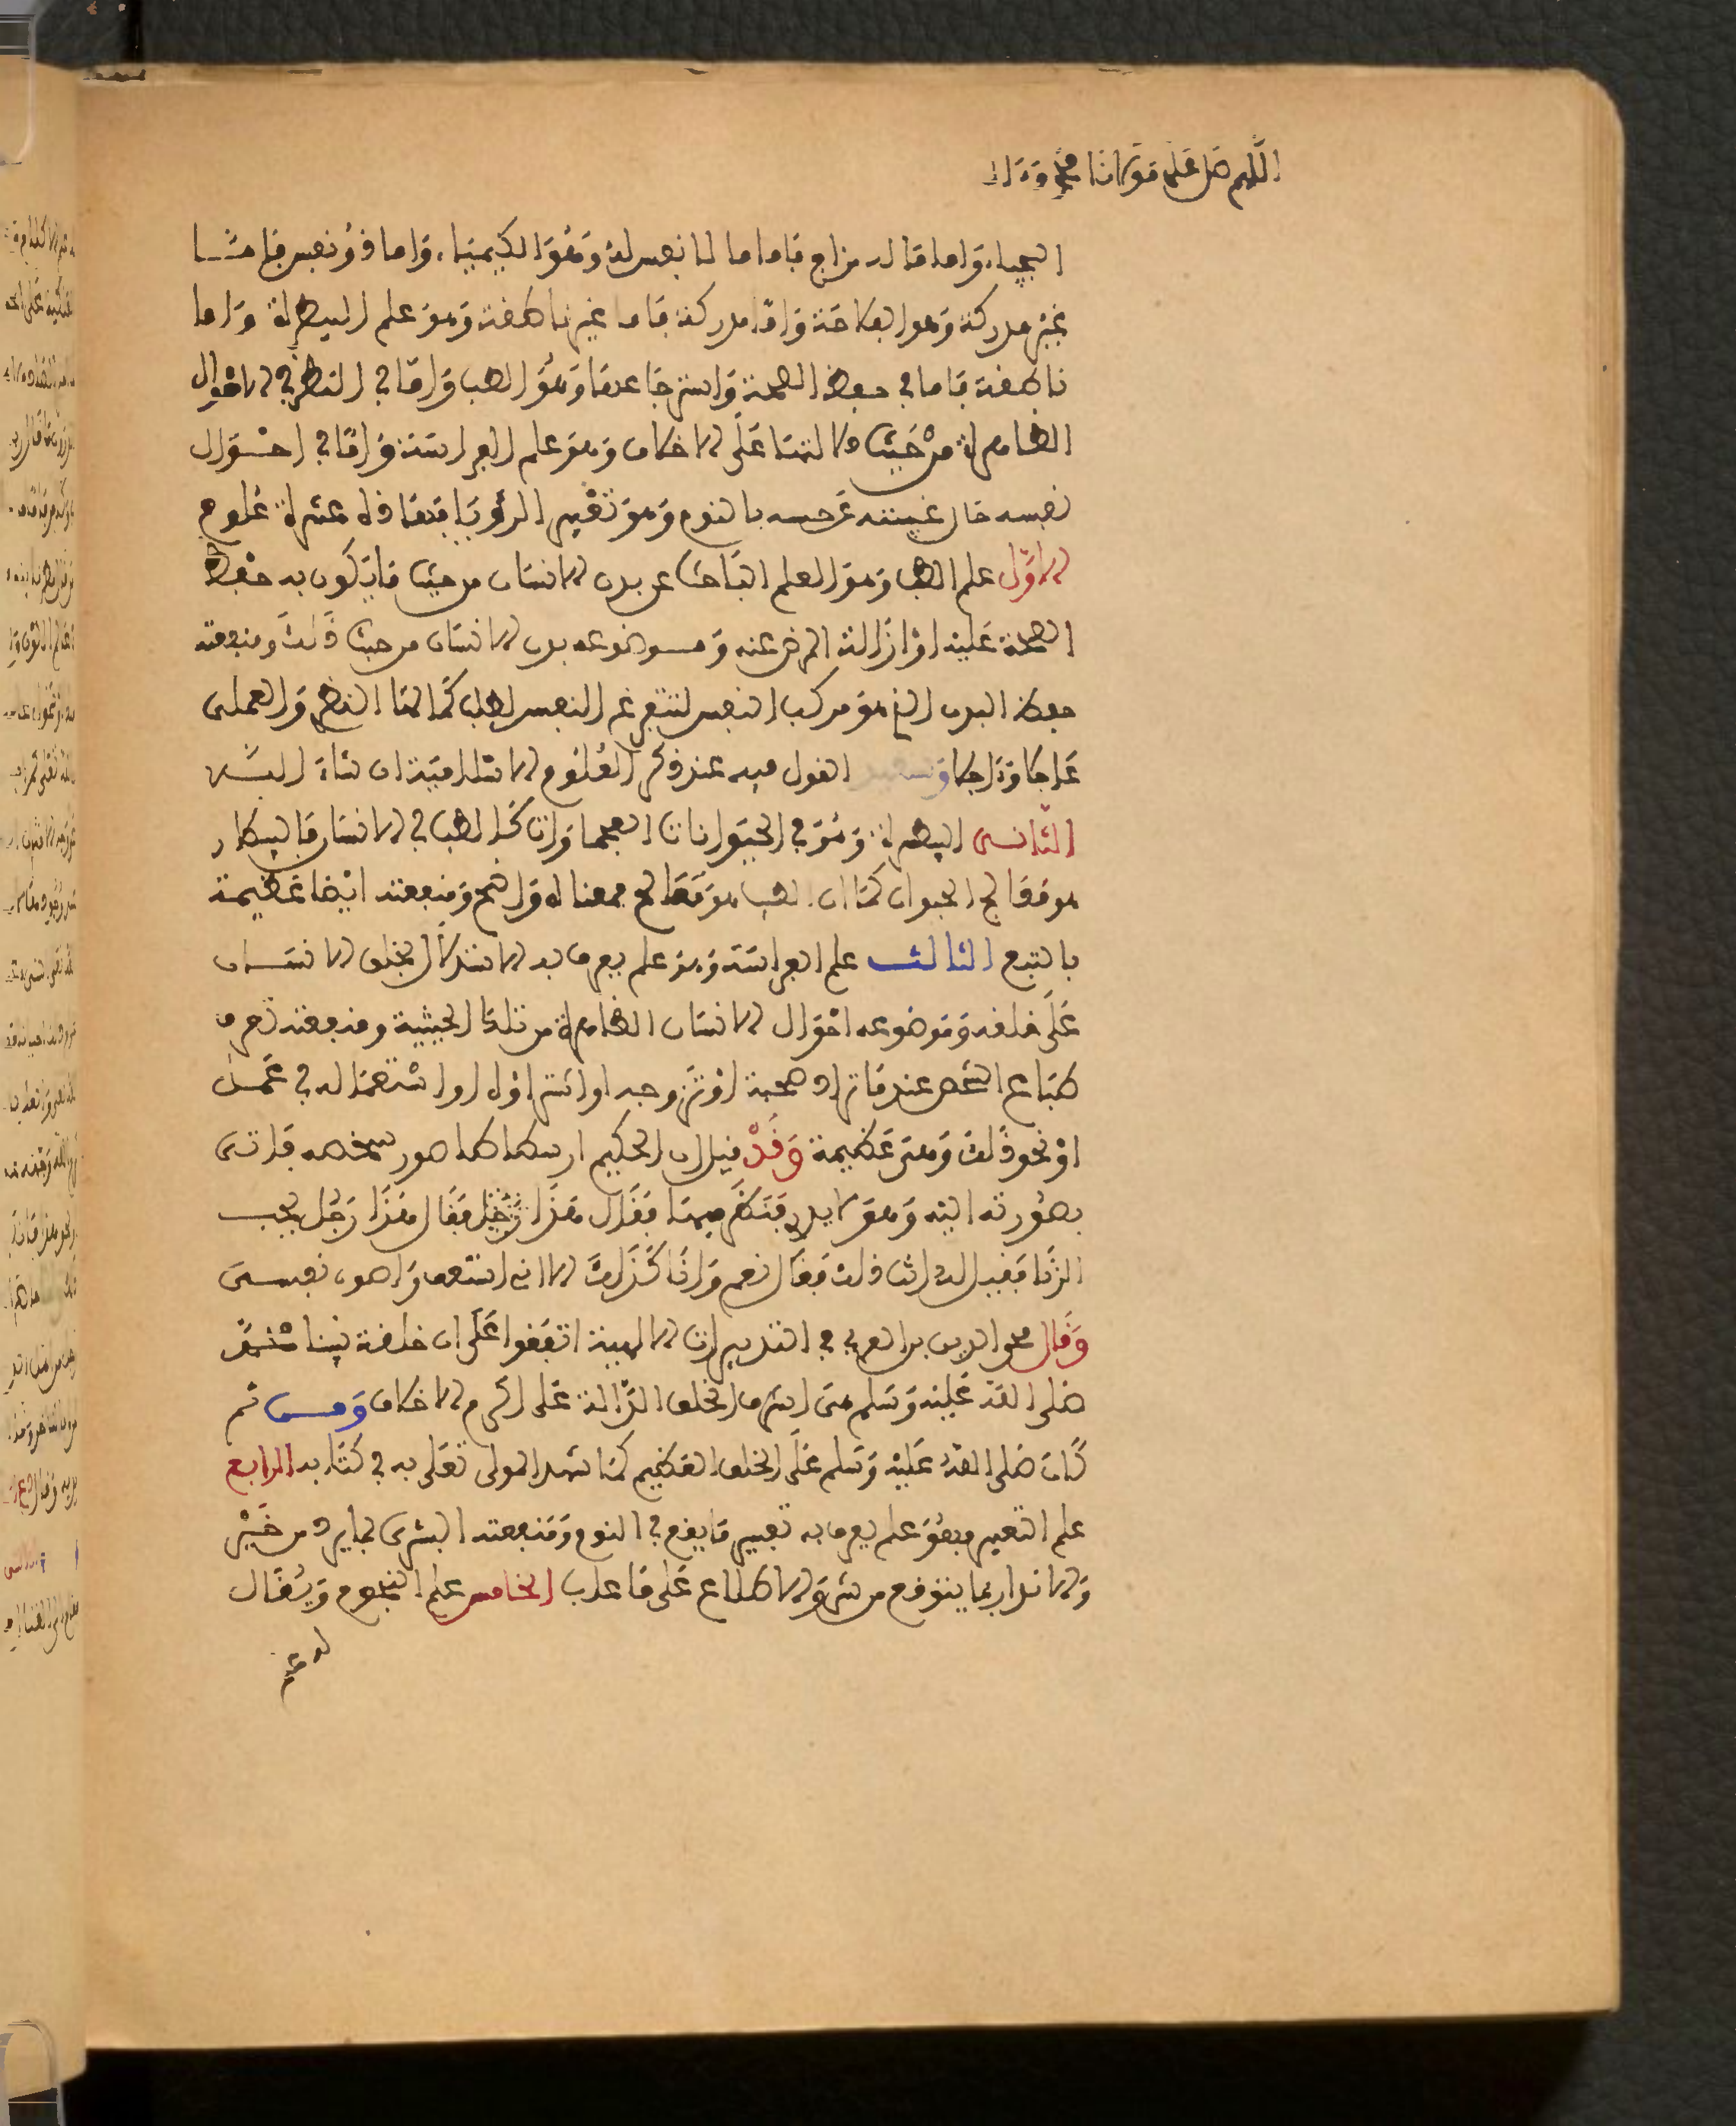 اللهم صل على مولانا محمد وءاله
السيمياء، واما ماله مزاج فاما ما لا نفس له وهو الكيمياء، واما ذو نفس فاما
غير مدركة وهو الفلاحة واما مدركة فاما غير ناطقة وهو علم البيطرة واما
ناطقة فاما في حفظ الصحة واسترجاعها وهو الطب واما في النظر في الاحوال
الظاهرة من حيث دلالتها على الاخلاق وهو علم الفراسة واما في احوال
نفسه حال غيبته عن حسه بالنوم وهو تعبير الرؤيا فهذه عشرة علوم
الاول علم الطب وهو العلم الباحث عن بدن الانسان من حيث ما يكون به حفظ
الصحة عليه او ازالة المرض عنه وموضوعه بدن الانسان من حيث ذلك ومنفعته
حفظ البدن الذي هو مركب النفس لتتفرغ النفس لطلب كمالها النظري والعملي
عاجلا وءاجلا القول فيه عند ذكر العلوم الاسلامية ان شاء الله
الثاني البيطرة وهو في الحيوانات العجماوات كالطب في الانسان فالبيطار
هو معالج الحيوان كما ان الطب هو معالج معناه واضح ومنفعته ايضا عظيمة
بالتبع الثالث علم الفراسة وهو علم يعرف به الاستدلال بخلق الانسان
على خلقه وموضوعه احوال الانسان الظاهرة من تلك الحيثية ومنفعته تعرف
طباع الشخص عند ما تراد صحبة او تزوجه او استعماله في عمل
او نحو ذلك وهي عظيمة وقد قيل ان الحكيم ارسطاطا صور شخصه فاتى
بصورته اليه وهو لا يدري فنظر فيها فقال هذا رجل فقال هذا رجل يحب
الزنا فقيل له انت ذلك فقال نعم وانا كذلك الا اني استعف واصون نفسي
وقال محيي الدين بن العربي في التدبيرات الالهية اتفقوا على ان خلقة نبينا محمد
صلى الله عليه وسلم هي اشرف الخلق الدالة على اكرم الاخلاق ومن ثم
كان صلى الله عليه وسلم على الخلق العظيم كما شهد المولى تعلى به في كتابه الرابع
علم التعبير وهو علم يعرف به تعبير ما يقع في النوم ومنفعته البشرى بما يرد من خير
والانذار بما يتوقع من شر والاطلاع على ما غاب الخامس علم النجوم ويقال
له علم